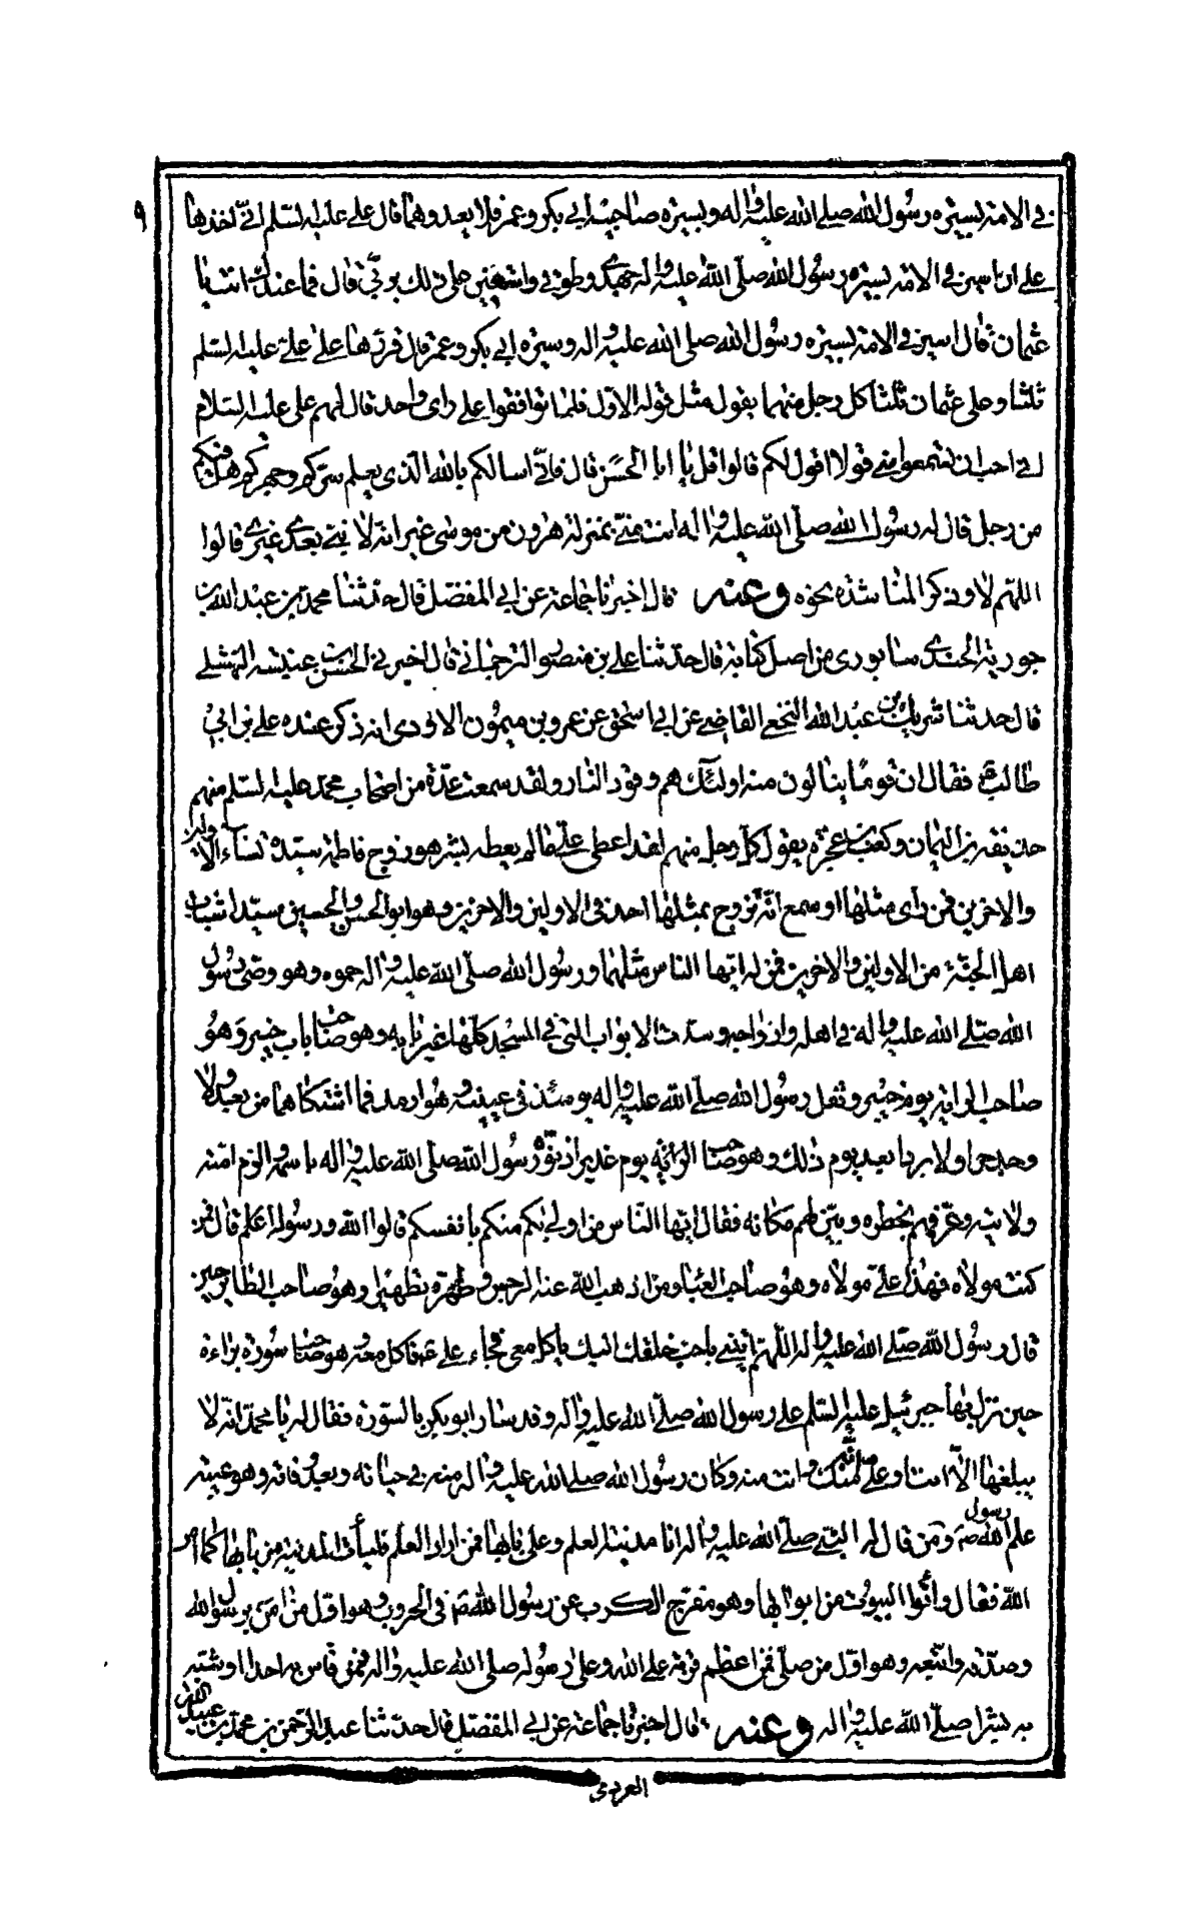 ٩
في الامة بسيرة رسول الله صلى الله عليه واله وبسيرة صاحبيه ابي بكر وعمر فلا يعدوهما قال علي عليه السلم اني اخذها
على ان اسير في الامة بسيرة رسول الله صلى الله عليه واله جهدي وطوقي واستعين على ذلك بربي قال فما عندك انت يا
عثمان قال اسير في الامة بسيرة رسول الله صلى الله عليه واله وسيرة ابي بكر وعمر قال فردها على علي عليه السلم
ثلثا وعلى عثمان ثلثا كل رجل منهما يقول مثل قوله الاول فلما توافقوا على راى واحد قال لهم علي عليه السلام
اني احب ان تسمعوا مني قولا اقول لكم قالوا قل يا ابا الحسن قال فاني اسالكم بالله الذي يعلم سركم وجهركم هل فيكم
من رجل قال له رسول الله صلى الله عليه واله انت مني بمنزلة هرون من موسى غير انه لا نبي بعدي غيري قالوا
اللهم لا وذكر المناشدة نحوه وعنه قال اخبرنا جماعة عن ابي المفضل قال حدثنا محمد بن عبد الله بن
جورية الجندي سابوري من اصل كتابه قال حدثنا علي بن منصور الترجماني قال اخبرني الحسن بن عنبسة النهشلي
قال حدثنا شريك بن عبد الله النخعي القاضي عن ابي اسحق عن عمرو بن ميمون الاودي انه ذكر عنده علي بن ابي
طالب ع فقال ان قوما ينالون منه اولئك هم وقود النار ولقد سمعت عدة من اصحاب محمد عليه السلم منهم
حذيفة بن اليمان وكعب بن عجرة يقول كل رجل منهم لقد اعطى علي ما لم يعطه بشر هو زوج فاطمة سيدة نساء الاولين
والاخرين فمن راى مثلها او سمع انه تزوج بمثلها احد في الاولين والاخرين وهو ابو الحسن والحسين سيدا شباب
اهل الجنة من الاولين والاخرين فمن له ايها الناس مثلهما ورسول الله صلى الله عليه واله حموه وهو وصي رسول
الله صلى الله عليه واله في اهله وازواجه وسدت الابواب التي في المسجد كلها غير بابه وهو صاحب باب خيبر وهو
صاحب الراية يوم خيبر وتفل رسول الله صلى الله عليه واله يومئذ في عينيه وهو ارمد فما اشتكاهما من بعد ولا
وجد حرا ولا بردا بعد يوم ذلك وهو صاحب الراية يوم غدير اذ نوه رسول الله صلى الله عليه واله باسمه والزم امته
ولايته وعرفهم بخطره وبين لهم مكانه فقال ايها الناس من اولى بكم منكم بانفسكم قالوا الله ورسوله اعلم قال فمن
كنت مولاه فهذا علي مولاه وهو صاحب العباء ومن اذهب الله عنه الرجس وطهره تطهيرا وهو صاحب الطاير حين
قال رسول الله صلى الله عليه واله اللهم ائتني باحب خلقك اليك ياكل معي فجاء علي ع فاكل معه وهو صاحب سورة براءة
حين نزل بها جبرئيل عليه السلم على رسول الله صلى الله عليه واله وقد سار ابو بكر بالسورة فقال له يا محمد انه لا
يبلغها الا انت او علي انه منك وانت منه وكان رسول الله صلى الله عليه واله منه في حياته وبعد وفاته وهو عيبة
علم رسول الله ص ومن قال له النبي صلى الله عليه واله انا مدينة العلم وعلي بابها فمن اراد العلم فليأت المدينة من بابها كما امر
الله فقال وأتوا البيوت من ابوابها وهو مفرج الكرب عن رسول الله ص في الحروب وهو اول من امن برسول الله
وصدقه واتبعه وهو اول من صلى فمن اعظم فرية على الله وعلى رسوله صلى الله عليه واله فمن قاس به احدا او شبه
به بشرا صلى الله عليه واله وعنه قال اخبرنا جماعة عن ابي المفضل قال حدثنا عبد الرحمن بن محمد بن عبيد الله
العرزمي